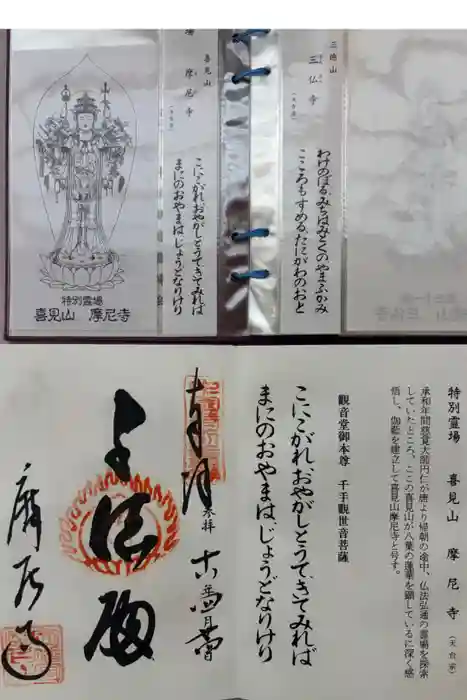 三徳山
三仏寺
(天台宗)
わけのぼるみちはみとくのやまふかみ
こころもすめるたにがわのおと
喜見山
摩尼寺
(天台宗)
こにこがれおやがしとうてきてみれば
まにのおやまはじょうどなりけり
特別霊場
喜見山 摩尼寺
特別霊場 喜見山 摩尼寺 (天台宗)
承和年間慈覚大師円仁が唐より帰朝の途中、仏法弘通の霊場を探索
していたところ、ここの喜見山が八葉の蓮華を顕しているに深く感
悟し、伽藍を建立して喜見山摩尼寺と号す。
観音堂御本尊 千手観世音菩薩
こにこがれおやがしとうてきてみれば
まにのおやまはじょうどなりけり
奉拝
摩尼寺